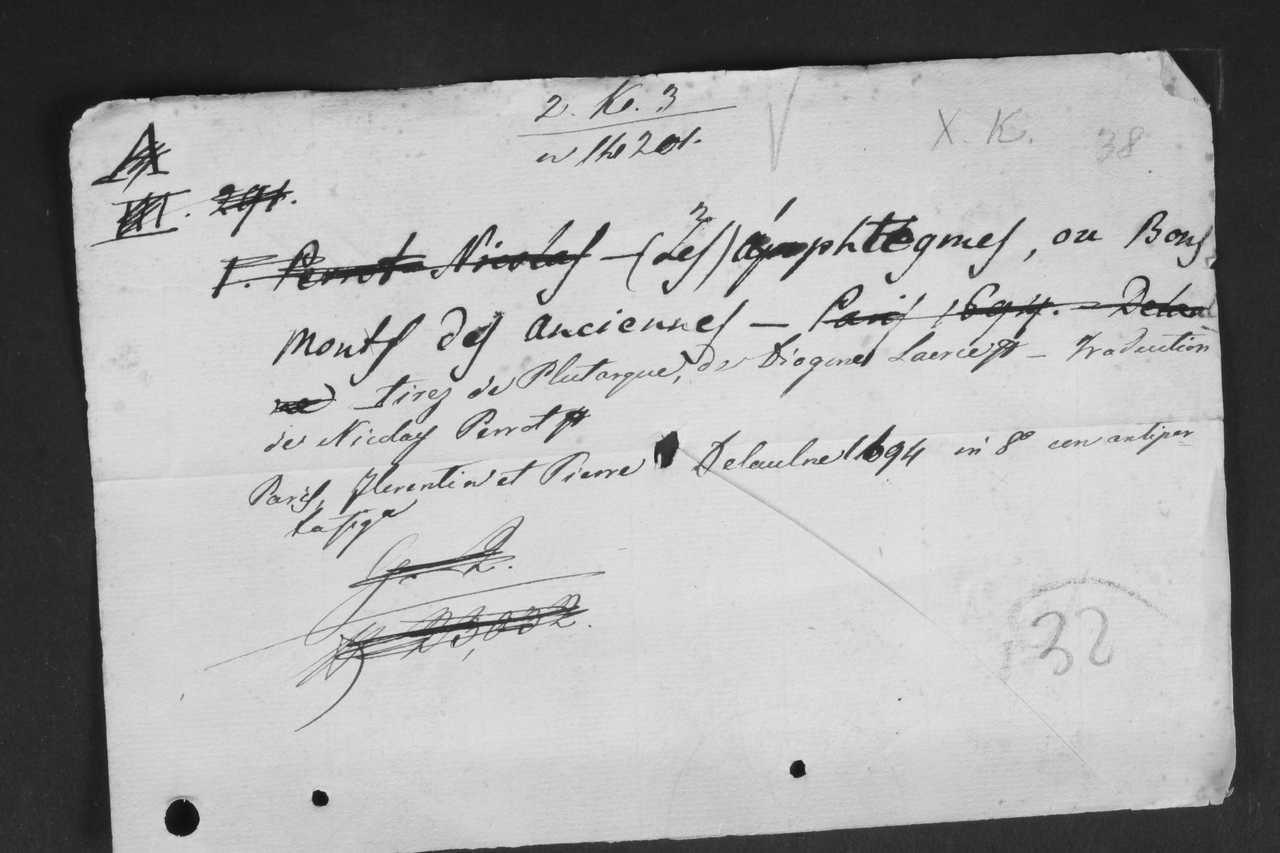 2. K. 3
X. K.
38
F. Perrot Nicolas - (Les) apophtegmes, ou Bons
monts des anciennes - Paris 1694. - Delau
ne tirez de Plutarque, de Diogene Laerce - Traduction
de Nicolas Perrot
Paris, Florentin et Pierre Delaulne 1694 in 8° con antiper
ta
32